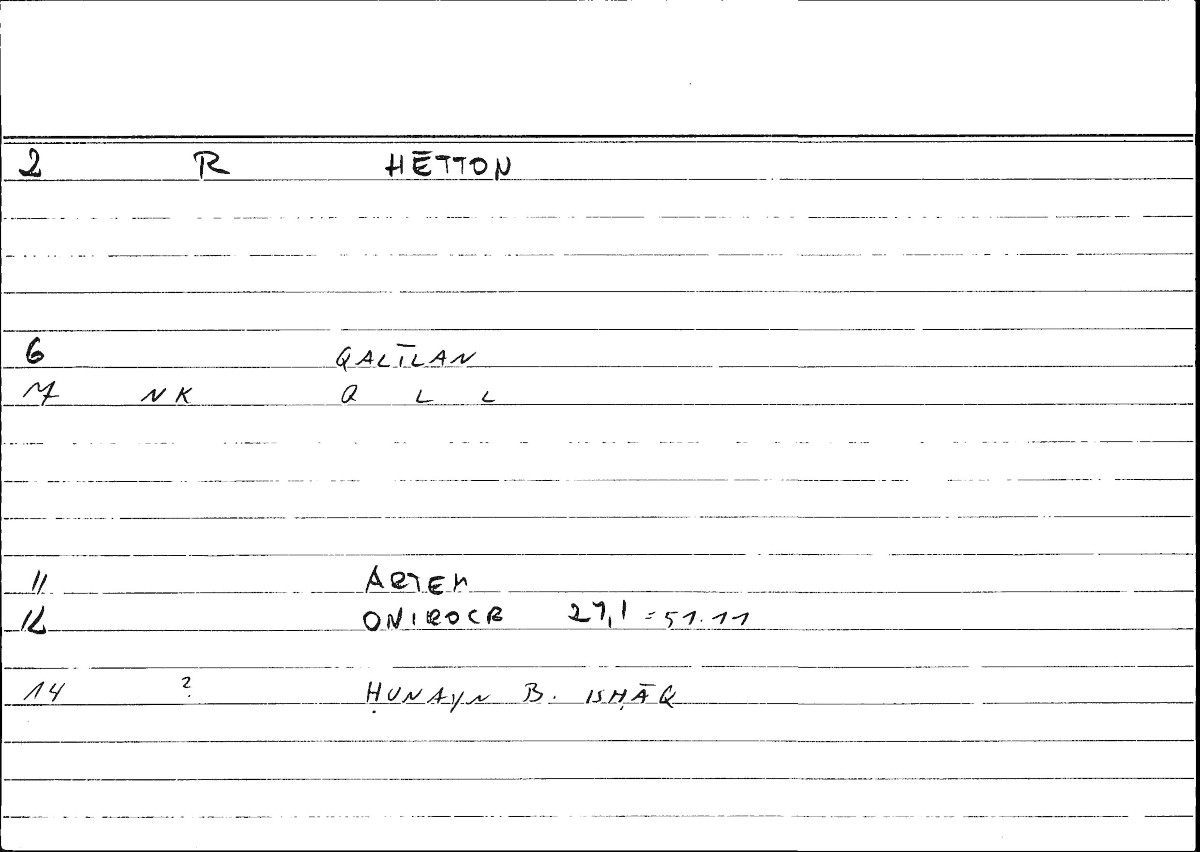 2 R HĒTTON
6 QALĪLAN
7 NK Q L L
11 ARTEM
12 ONIROCR 27,1 = 51.11
14 ? ḤUNAYN B. ISḤĀQ